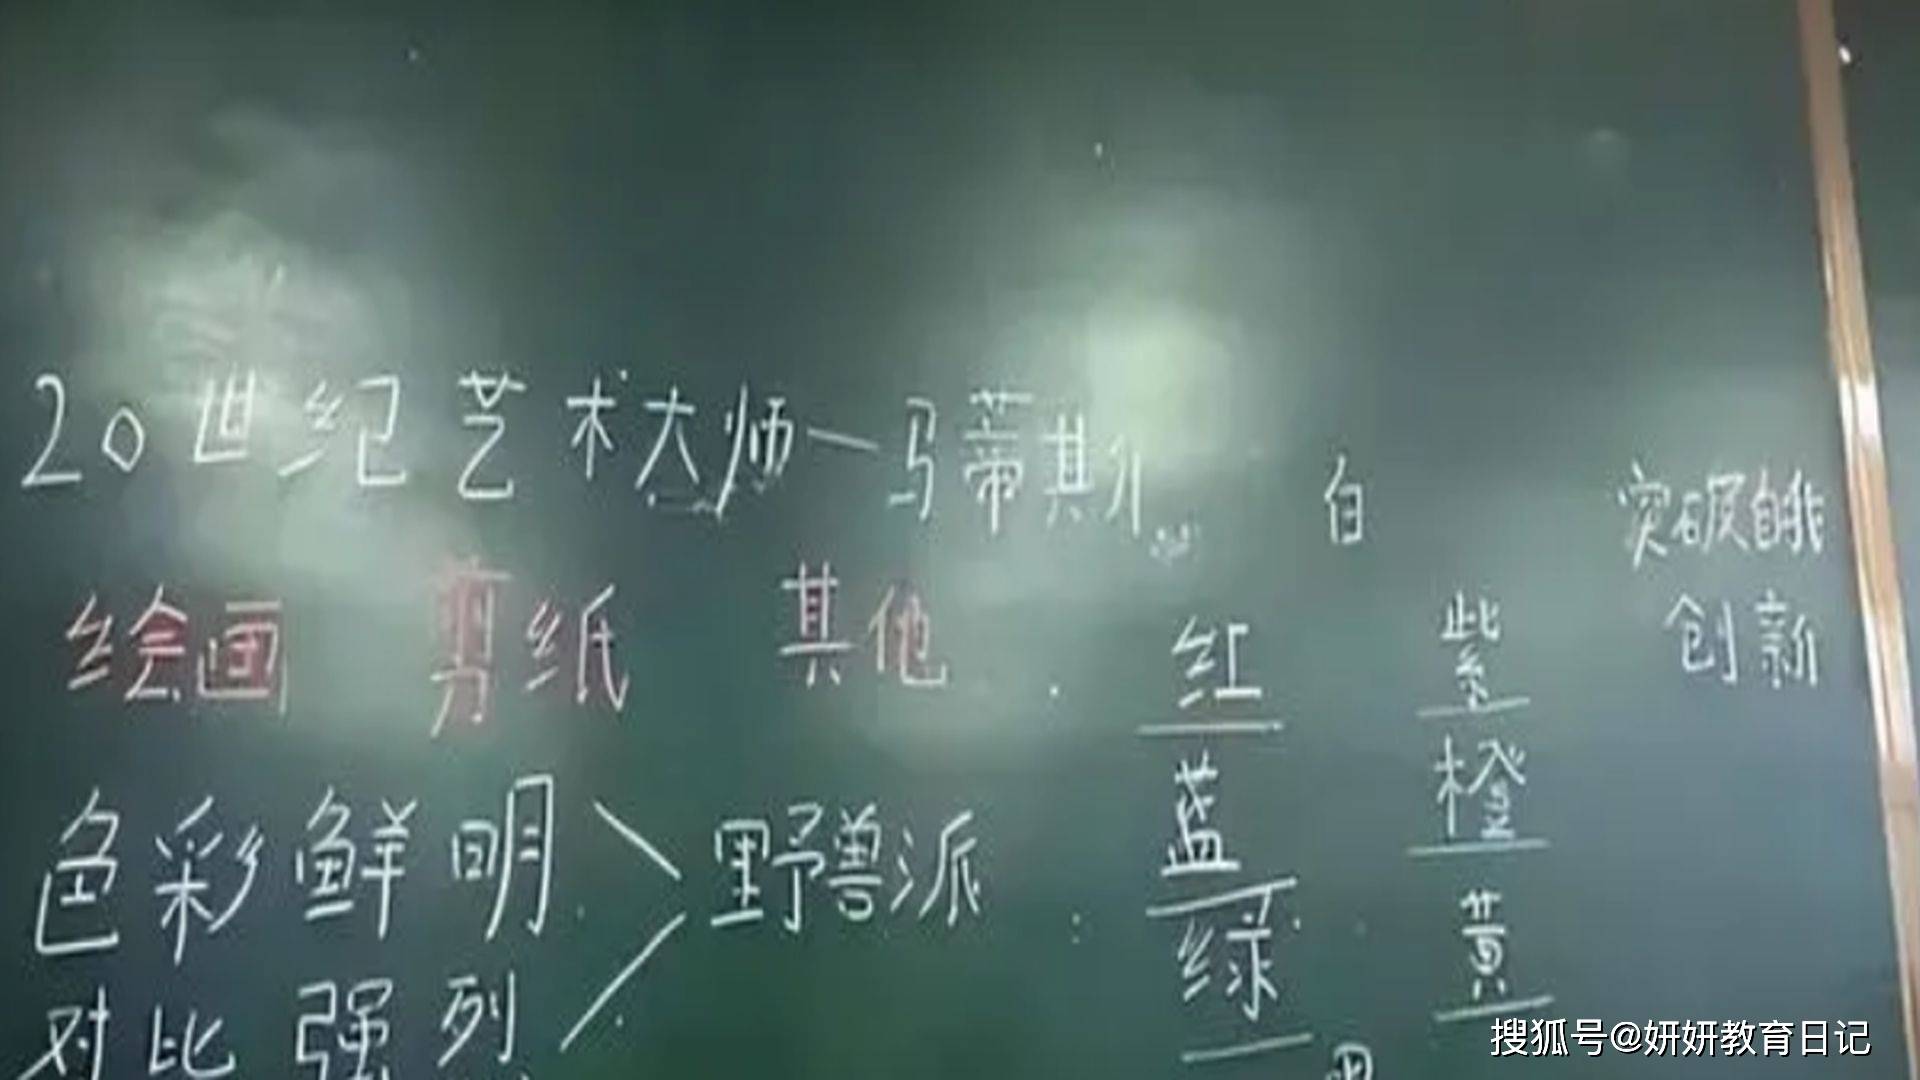 20世纪艺术大师—马蒂斯
绘画 剪纸 其他
色彩鲜明
对比强列
野兽派
白
红
蓝
绿
紫
橙
黄
突破自我
创新
搜狐号@妍妍教育日记